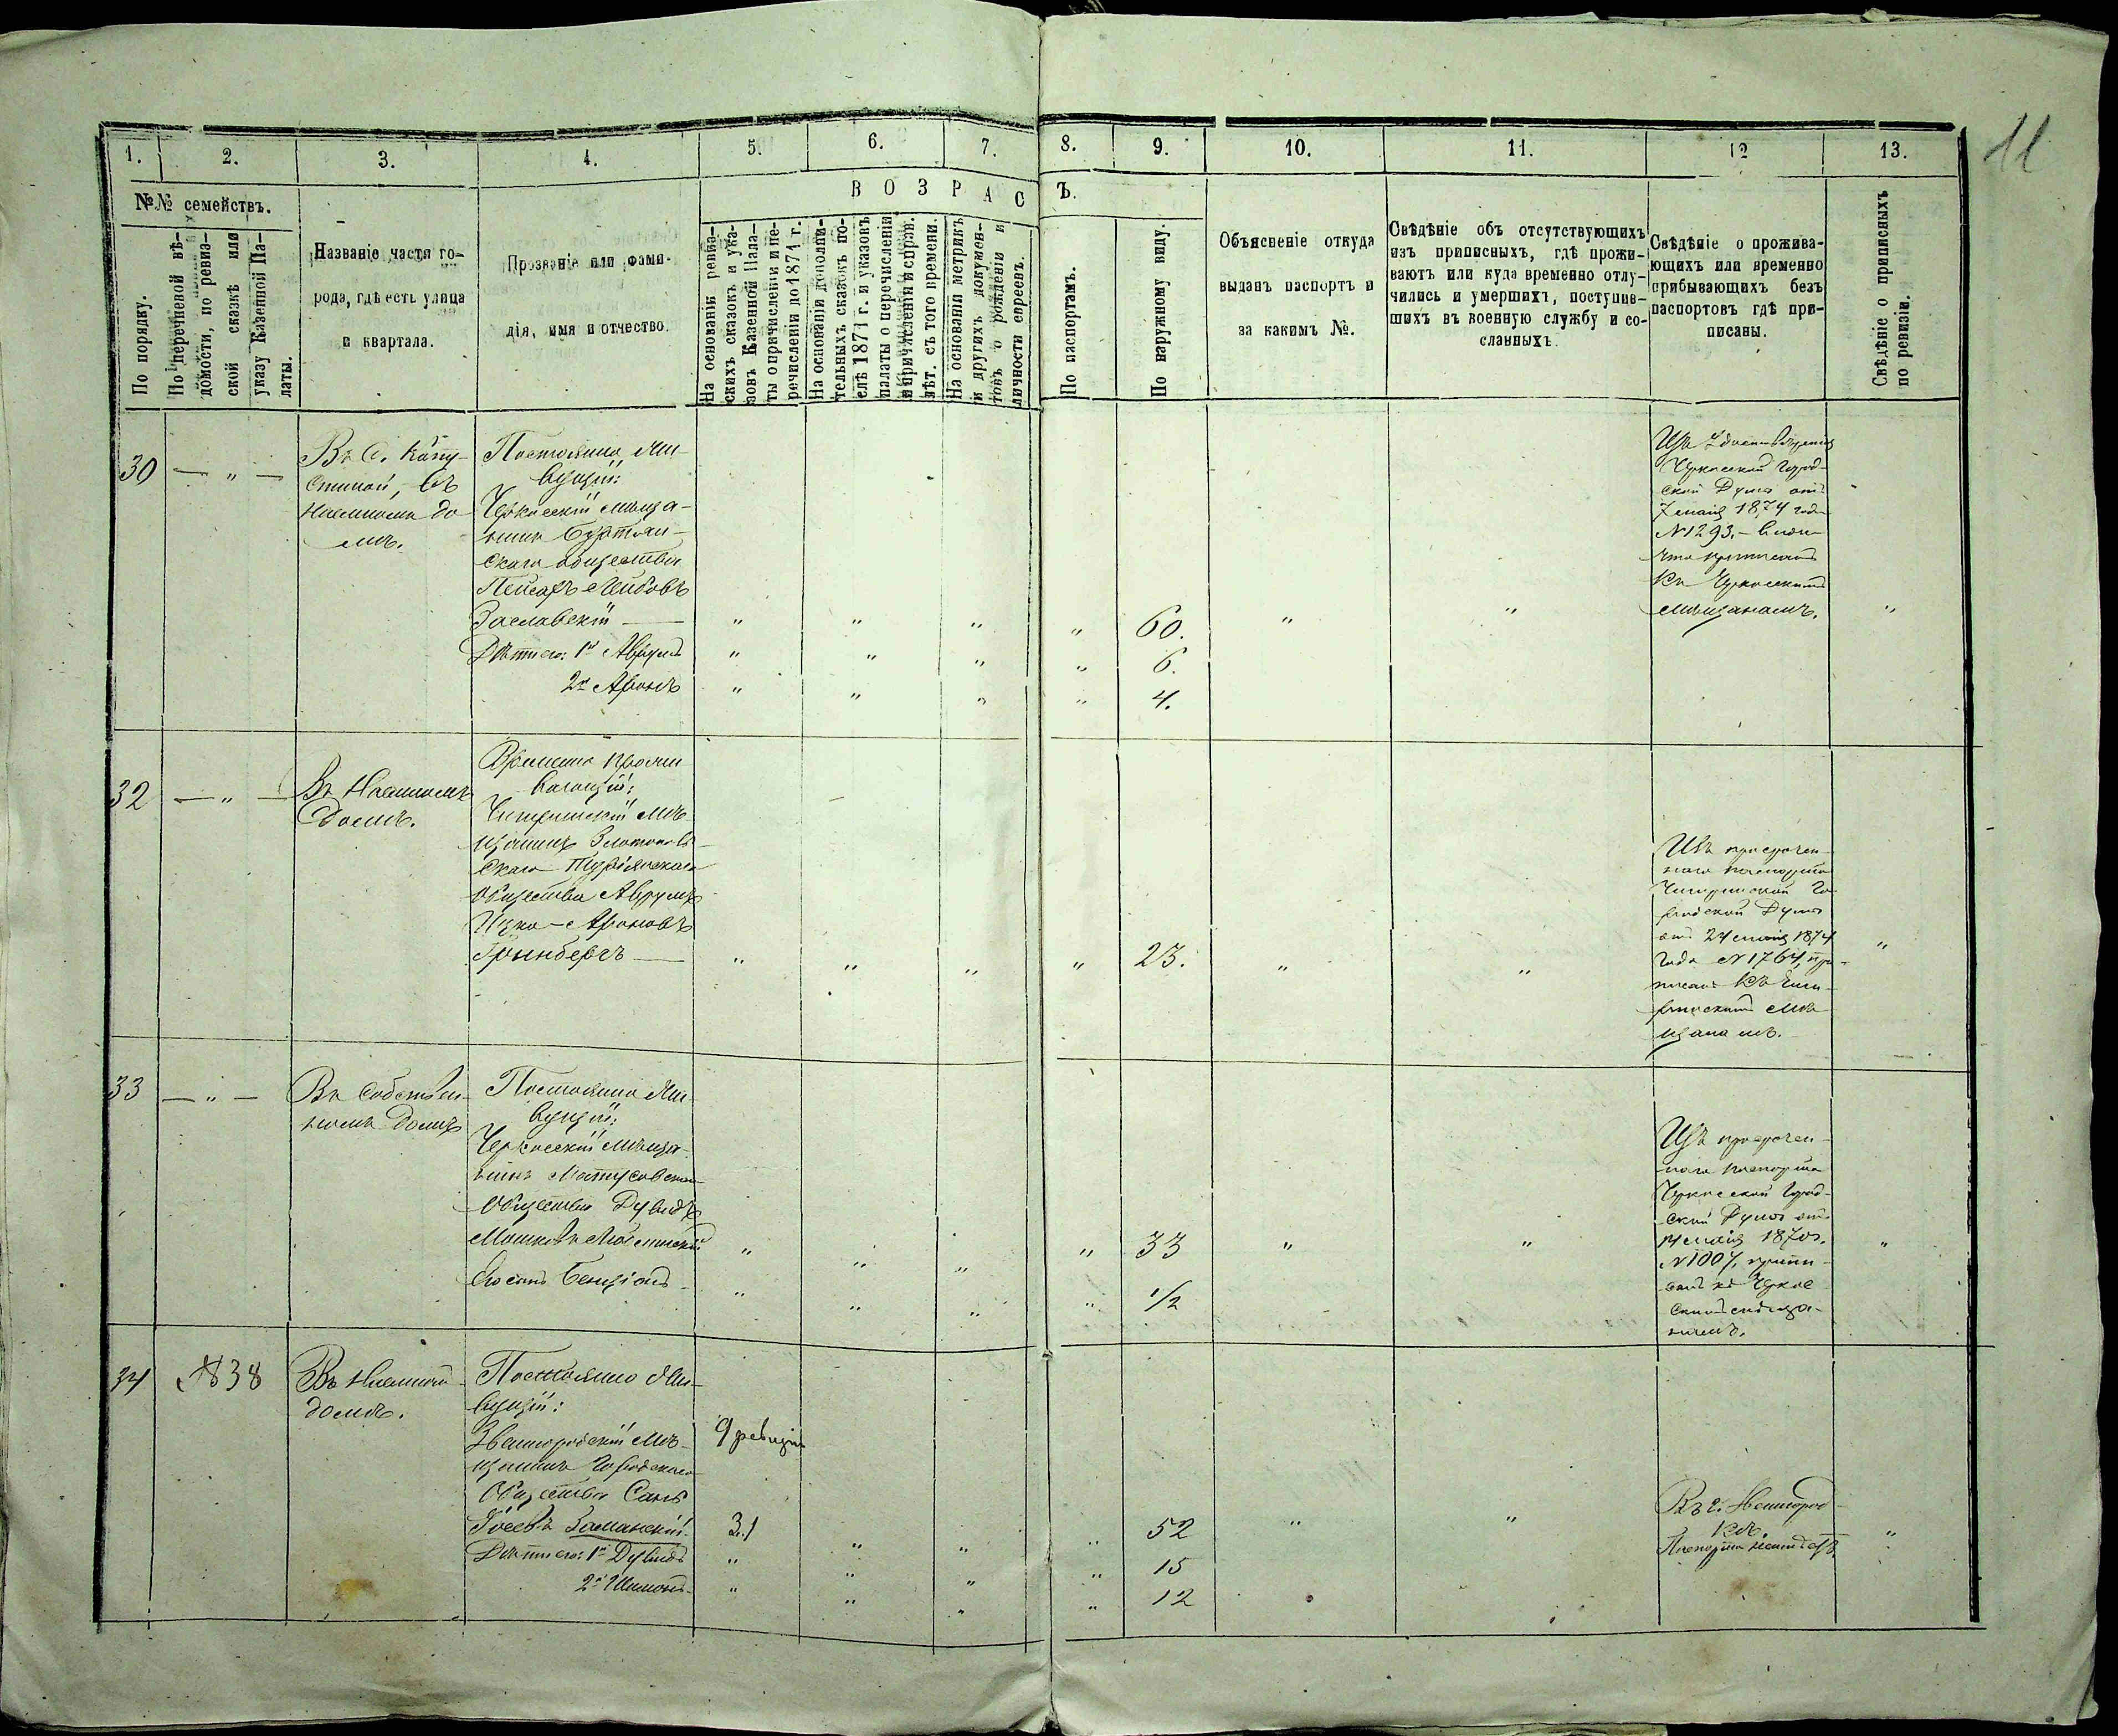 11
1. 2. 3. 4. 5. 6. 7. 8. 9. 10. 11. 12 13.
№№ семействъ.
По порядку.
По перечневой вѣ-
домости, по ревиз-
ской сказкѣ или
указу Казенной Па-
латы.
Названіе части го-
рода, гдѣ есть улица
и квартала.
Прозваніе или фами-
лія, имя и отчество.
ВОЗРАСТЪ.
На основаніи ревиз-
скихъ сказокъ и ука-
зовъ Казенной Пала-
ты о причисленіи и пе-
речисленіи до 1871 г.
На основаніи дополни-
тельныхъ сказокъ по-
слѣ 1871 г. и указовъ
палаты о перечисленіи
и причисленіи и справ.
лѣт. съ того времени.
На основаніи метрикъ
и другихъ докумен-
товъ о рожденіи и
личности евреевъ.
По паспортамъ.
По наружному виду.
Объясненіе откуда
выданъ паспортъ и
за какимъ №.
Свѣдѣніе объ отсутствующихъ
изъ приписныхъ, гдѣ прожи-
ваютъ или куда временно отлу-
чились и умершихъ, поступив-
шихъ въ военную службу и со-
сланныхъ.
Свѣдѣніе о прожива-
ющихъ или временно
прибывающихъ безъ
паспортовъ гдѣ при-
писаны.
Свѣдѣніе о приписныхъ
по ревизіи.
30 — " —
Въ С. Капу-
стиной, въ
Наемномъ до
мѣ.
Постоянно Жи-
вущій:
Черкасскій мѣща-
нинъ
скаго общества
Пейсахъ Лейбовъ
Заславскій — " " " " 60. " " "
Дѣти его: 1й Аврумъ " " " " 6.
2й Аронъ " " " " 4.
Черкасской Город-
ской Думы отъ
7 маія 1874 года
№ 1293. — видно
что приписанъ
Къ Черкасскимъ
мѣщанамъ.
32 — " —
Въ Наемномъ
Домѣ.
Временно прожи
вающій:
Чигиринскій Мѣ-
щанинъ
скаго
Общества Аврумъ
Ицко-Ароновъ
Гринбергъ — " " " " 23. " " "
Изъ просрочен-
наго паспорта
Чигиринской Го-
родской Думы
отъ 24 маія 1874
года № 1764, при-
писанъ Къ Чиги-
ринскимъ Мѣ-
щанамъ.
33 — " —
Въ Собствен-
номъ Домѣ
Постоянно Жи-
вущій:
Черкасскій Мѣща-
нинъ
Общества Дувидъ
Мошковъ " " " " 33 " " "
Его сынъ Бенціонъ " " " " 1/2
Изъ просрочен-
наго паспорта
Черкасской Город-
ской Думы отъ
14 маія 1870г.
№ 1007, припи-
санъ къ Черкас-
скимъ мѣща-
намъ.
34 №38
Въ Наемномъ
домѣ.
Постоянно Жи-
вущій:
Звенигородскій Мѣ-
щанинъ Городскаго
Общества
9 ревизіи
31 " " " 52 " " "
Дѣти его: 1й Дувидъ " " " " 15
2й Шимонъ " " " " 12
Въ г. Звенигород-
кѣ.